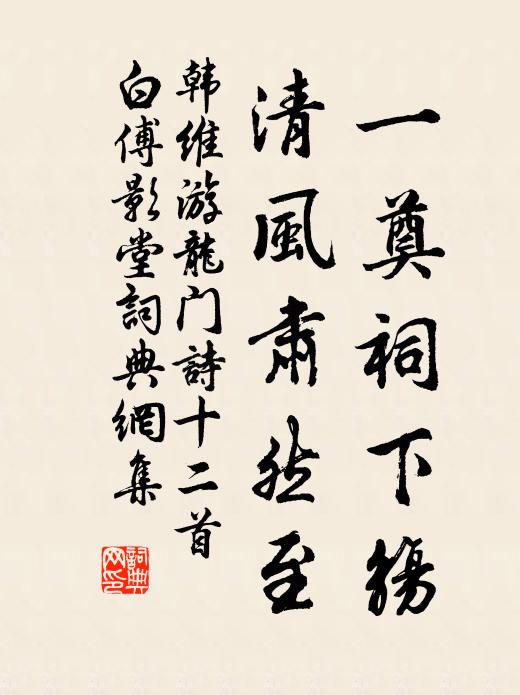 一奠祠下觴
清風肅然至
韩維游龍门詩十二首
白傅影堂詞典網集
詞典网印